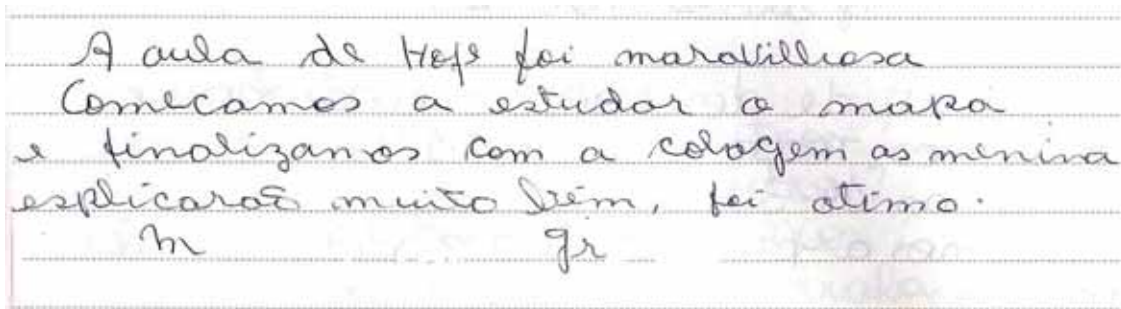 A aula de Hoje foi maravilhosa
Comecamos a estudar o mapa
e finalizamos com a colagem as menina
esplicaraõ muito bem, foi otimo.
m gr